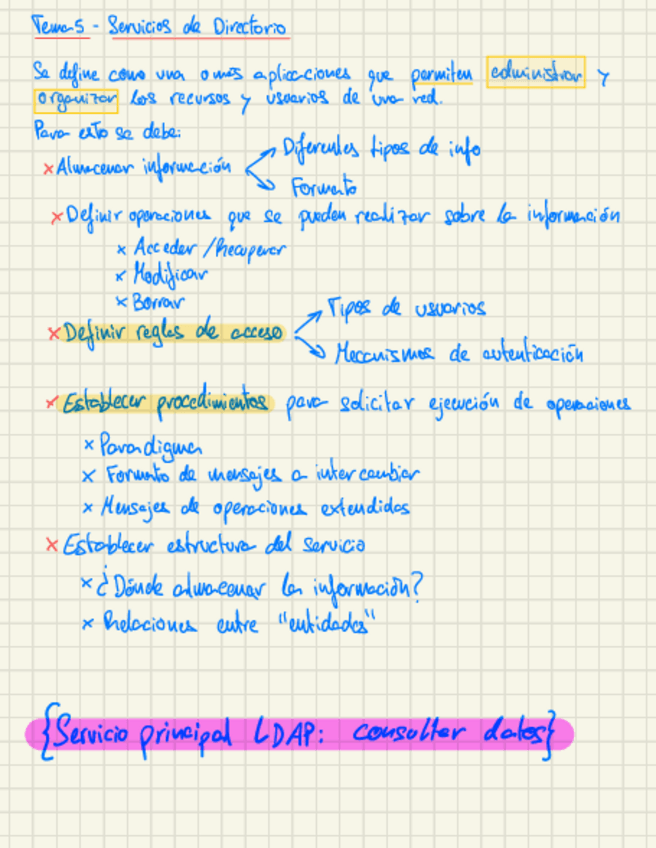 Tema 5 - Servicios de Directorio
Se define como una o más aplicaciones que permiten administrar y
organizar los recursos y usuarios de una red.
Para esto se debe:
× Almacenar información
Diferentes tipos de info
Formato
× Definir operaciones que se pueden realizar sobre la información
× Acceder / Recuperar
× Modificar
× Borrar
× Definir reglas de acceso
Tipos de usuarios
Mecanismos de autenticación
× Establecer procedimientos para solicitar ejecución de operaciones
× Paradigma
× Formato de mensajes a intercambiar
× Mensajes de operaciones extendidas
× Establecer estructura del servicio
× ¿Dónde almacenar la información?
× Relaciones entre "entidades"
{Servicio principal LDAP: consultar datos}